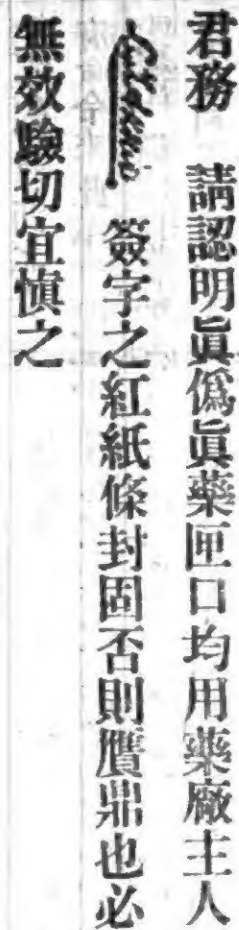 君務　請認明眞僞眞藥匣口均用藥廠主人
簽字之紅紙條封固否則贋鼎也必
無效驗切宜愼之